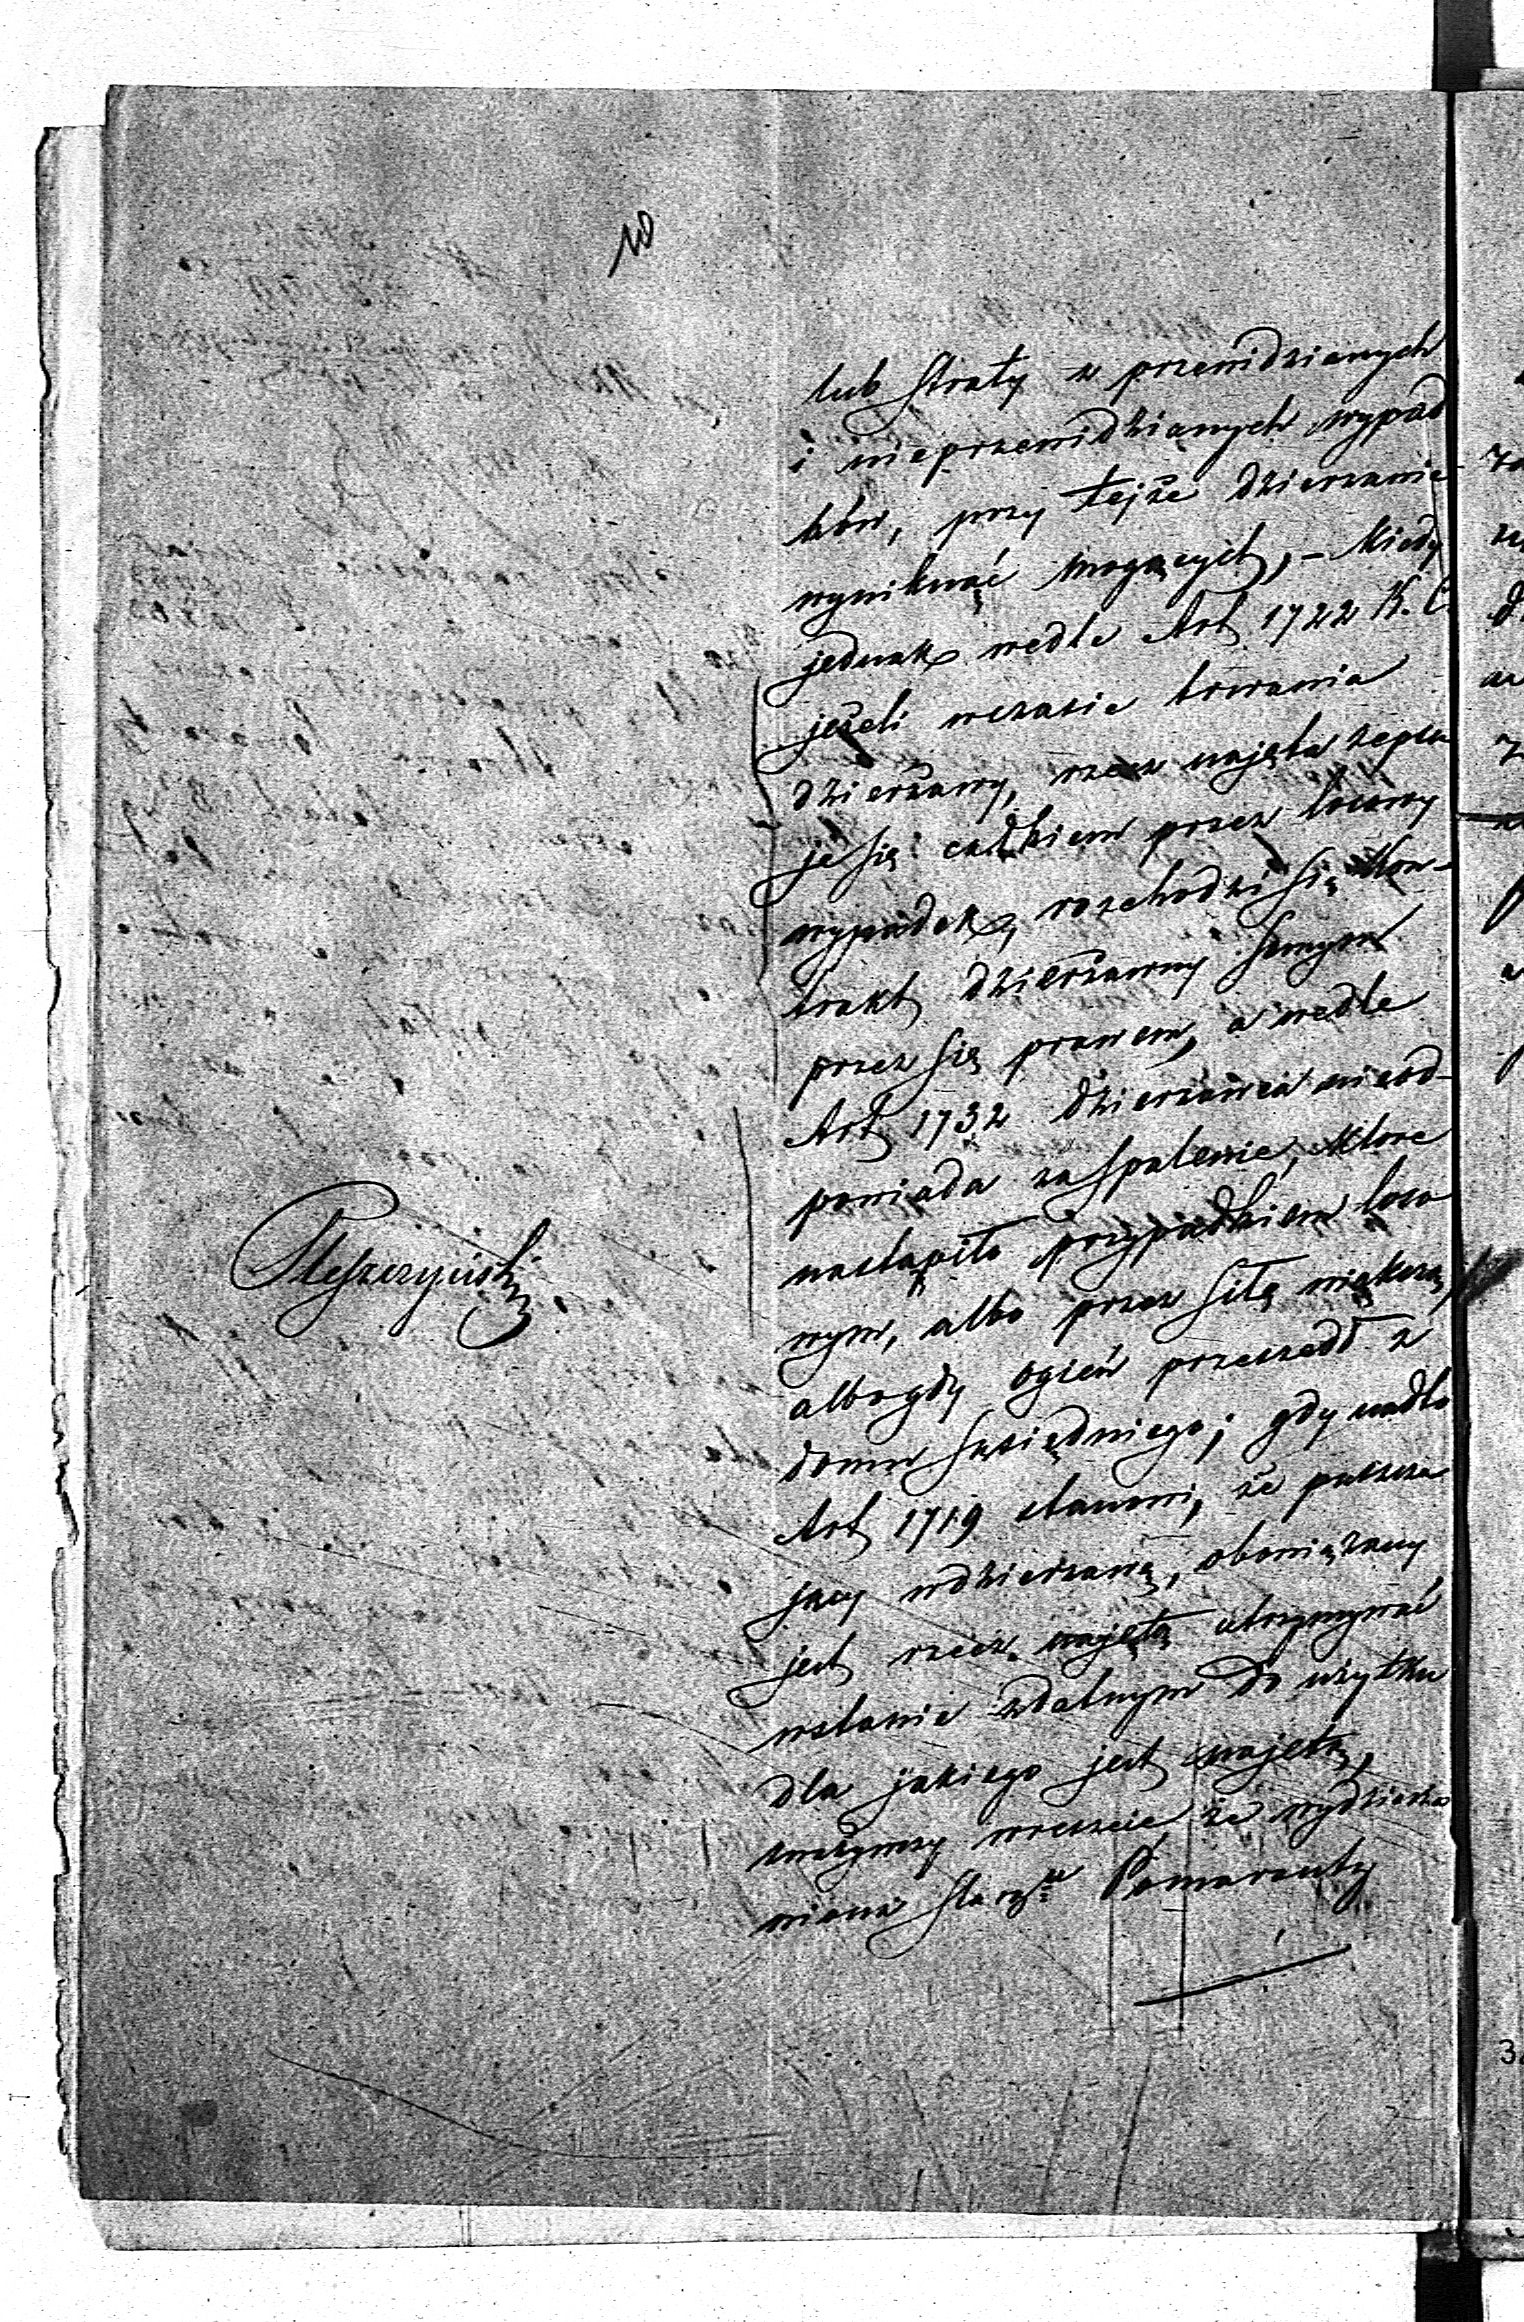 10
lub straty w przewidzianych
i nieprzewidzianych wypad
ków, przy tejże dzierzawie
wyniknąć mogących, – Kiedy
jednak wedle Art 1722 K. C.
jeżeli wczasie trwania
dzierżawy, rzecz najęta zepsu
je się całkiem przez losowy
wypadek, rozchodzi się Kon-
trakt dzierżawny samym
przez się prawem, a wedle
Art 1732 dzierzawca nieod-
powiada za spalenie, które
nastąpiło przypadkiem loso
wym, albo przez siłę większą,
albo gdy ogień przeszedł z
domu sąsiedniego; gdy nadto
Art 1719 stanowi, że puszcza
jący wdzierzawę, obowiązany
jest rzecz najętą utrzymywać
wstanie zdatnym do użytku
dla jakiego jest najętą,
zważywszy wreszcie że wydzierża
wiona Starozce Pomaranty
Pleszczyński